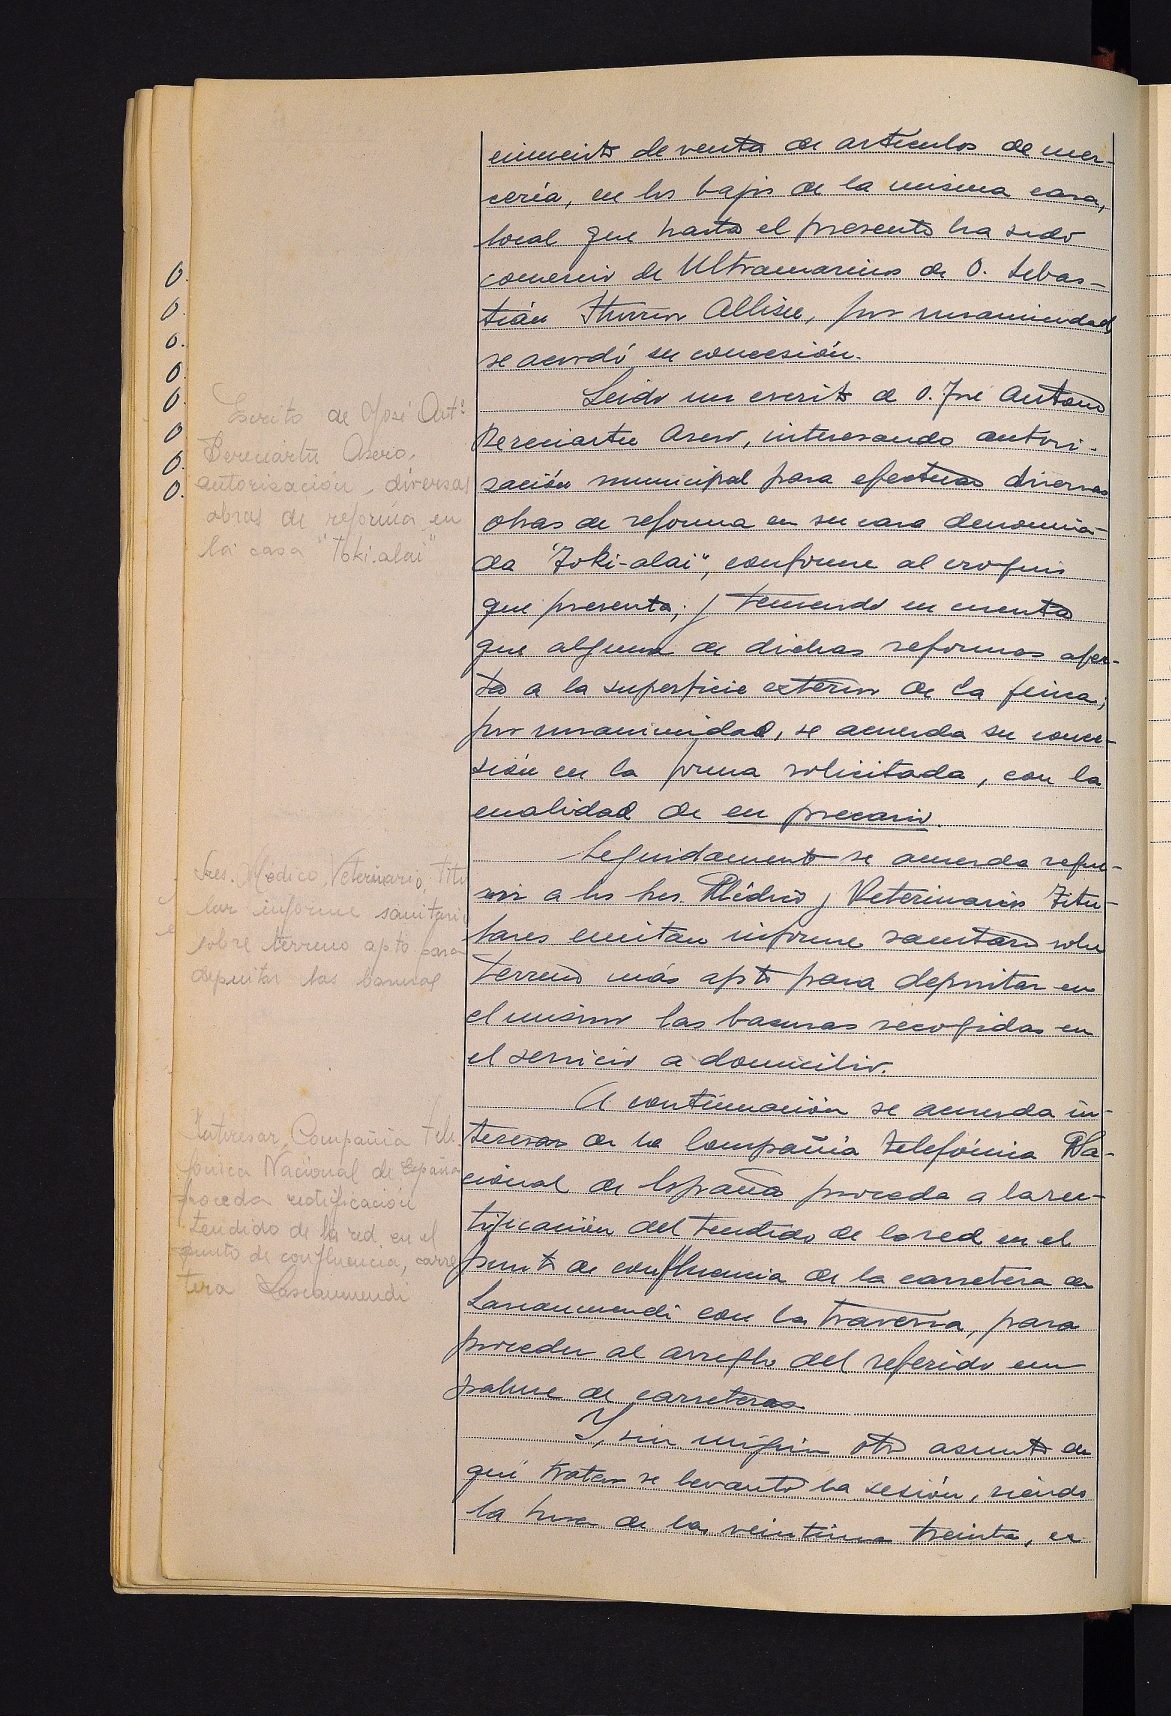 cimiento de venta de artículos de mer-
cería, en los bajos de la misma casa,
local que hasta el presente ha sido
comercio de Ultramarinos de D. Sebas-
tián por unanimidad
se acordó su concesión.
Leido un escrito de D. José Antonio
Bereciartu Asero, interesando autori-
zación municipal para efectuar diversas
obras de reforma en su casa denomina-
da "Toki-alai", conforme al croquis
que presenta; y teniendo en cuenta
que alguna de dichas reformas afec-
ta a la superficie exterior de la finca;
por unanimidad, se acuerda su conce-
sión en la forma solicitada, con la
cualidad de en precario.
Seguidamente se acuerda
a los Sres. Médico y Veterinario Titu-
lares emitan informe sanitario sobre
terreno más apto para depositar en
el mismo las basuras recogidas en
el servicio a domicilio.
A continuación se acuerda in-
teresar de la Compañia Telefónica Na-
cional de España proceda a la rec-
tificación del tendido de la red en el
punto de confluencia de la carretera de
Lascaumendi con la travesía, para
proceder al arreglo del referido em
palme de carreteras.
Y, sin ningún otro asunto de
qué tratar se levantó la sesión, siendo
la hora de las veintiuna treinta, de
Escrito de José Antº
Bereciartu Asero,
autorización, diversas
obras de reforma en
la casa "Toki-alai"
Sres. Médico, Veterinario, Titu
lar informe sanitario
sobre terreno apto para
depositar las basuras
Interesar, Compañia Tele
fónica Nacional de España
proceda rectificación
tendido de la red en el
punto de confluencia, carre
tera Lascaumendi
O.
O.
O.
O.
O.
O.
O.
O.